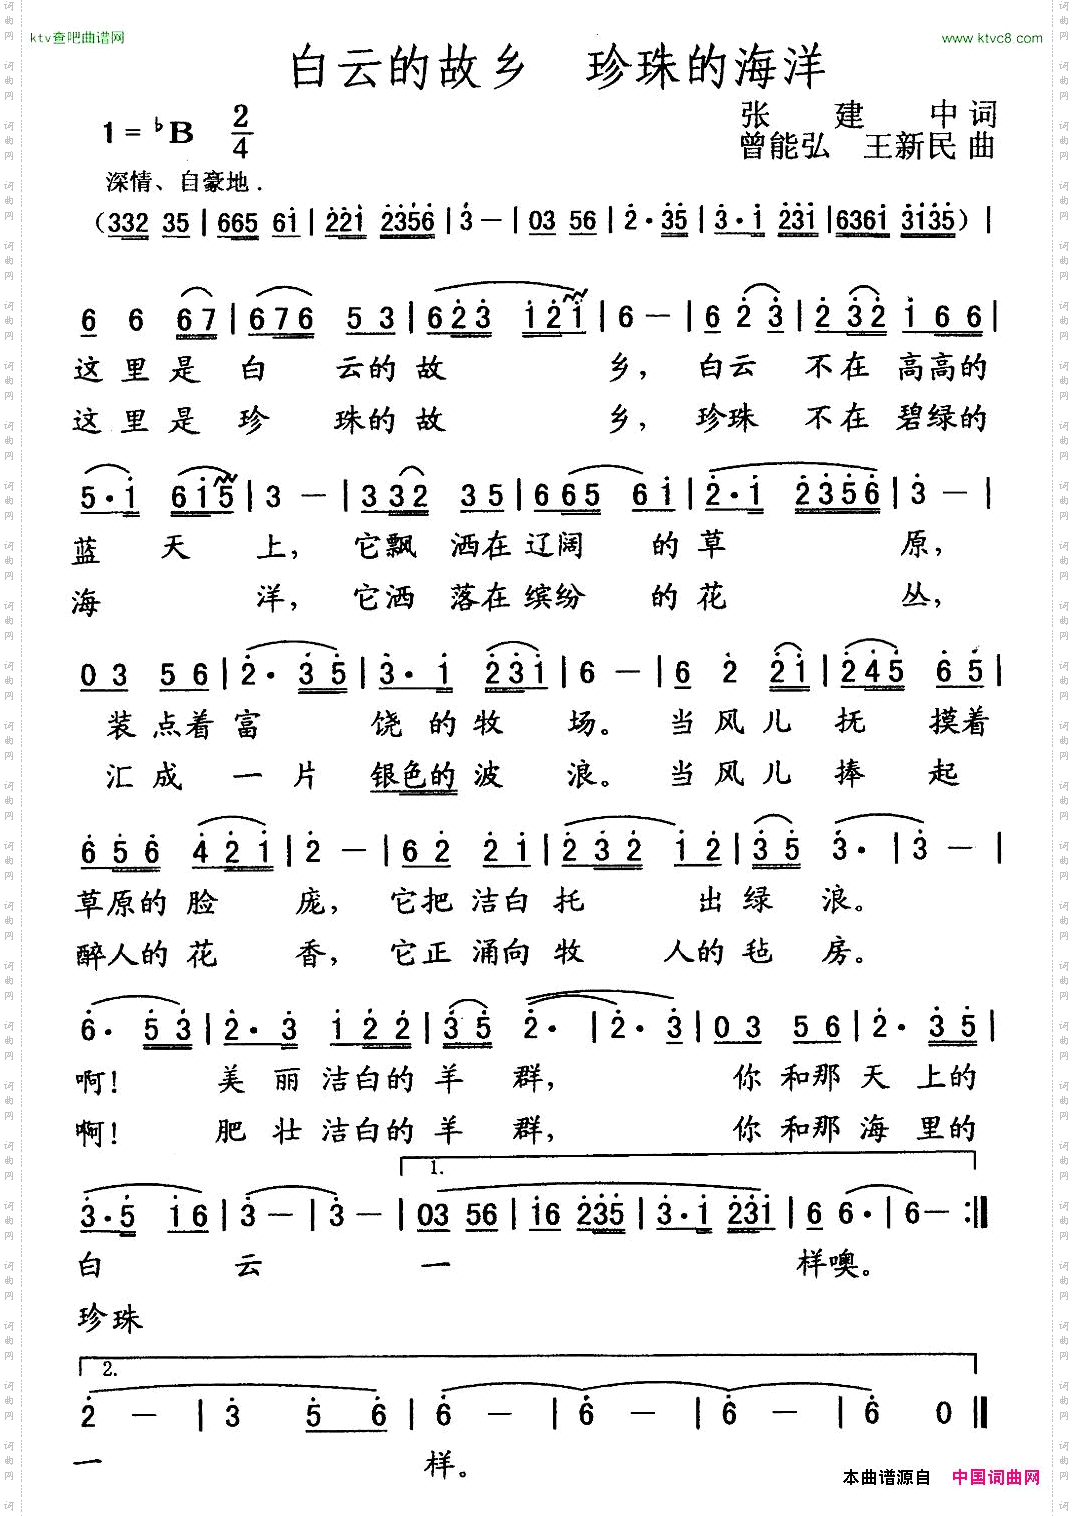 ktv查吧曲谱网
www.ktvc8.com
白云的故乡 珍珠的海洋
张建中词
1=♭B 2/4
曾能弘 王新民曲
深情、自豪地.
(332 35 | 665 6i | 22i 2356 | 3 — | 03 56 | 2· 35 | 3· i 23i | 636i 3i35) |
6 6 67 | 676 53 | 623 i2i | 6 — | 6 2 3 | 2 32 i 66 |
这里是白云的故乡，白云不在高高的
这里是珍珠的故乡，珍珠不在碧绿的
5· i 6i5 | 3 — | 332 35 | 665 6i | 2· i 2356 | 3 — |
蓝天上，它飘洒在辽阔的草原，
海洋，它洒落在缤纷的花丛，
03 56 | 2· 35 | 3· i 23i | 6 — | 6 2 2i | 245 65 |
装点着富饶的牧场。当风儿抚摸着
汇成一片银色的波浪。当风儿捧起
656 42i | 2 — | 62 2i | 232 i2 | 35 3· | 3 — |
草原的脸庞，它把洁白托出绿浪。
醉人的花香，它正涌向牧人的毡房。
6· 53 | 2· 3 i22 | 35 2· | 2· 3 | 03 56 | 2· 35 |
啊！美丽洁白的羊群，你和那天上的
啊！肥壮洁白的羊群，你和那海里的
1.
3·5 i6 | 3 — | 3 — | 03 56 | i6 235 | 3·i 23i | 6 6· | 6 — :||
白云一样噢。
珍珠
2.
2 — | 3 5 6 | 6 — | 6 — | 6 — | 6 0 ||
一样。
本曲谱源自 中国词曲网